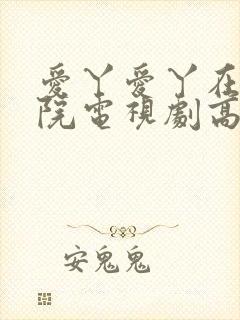 愛丫愛丫在
院電視劇高
安鬼鬼